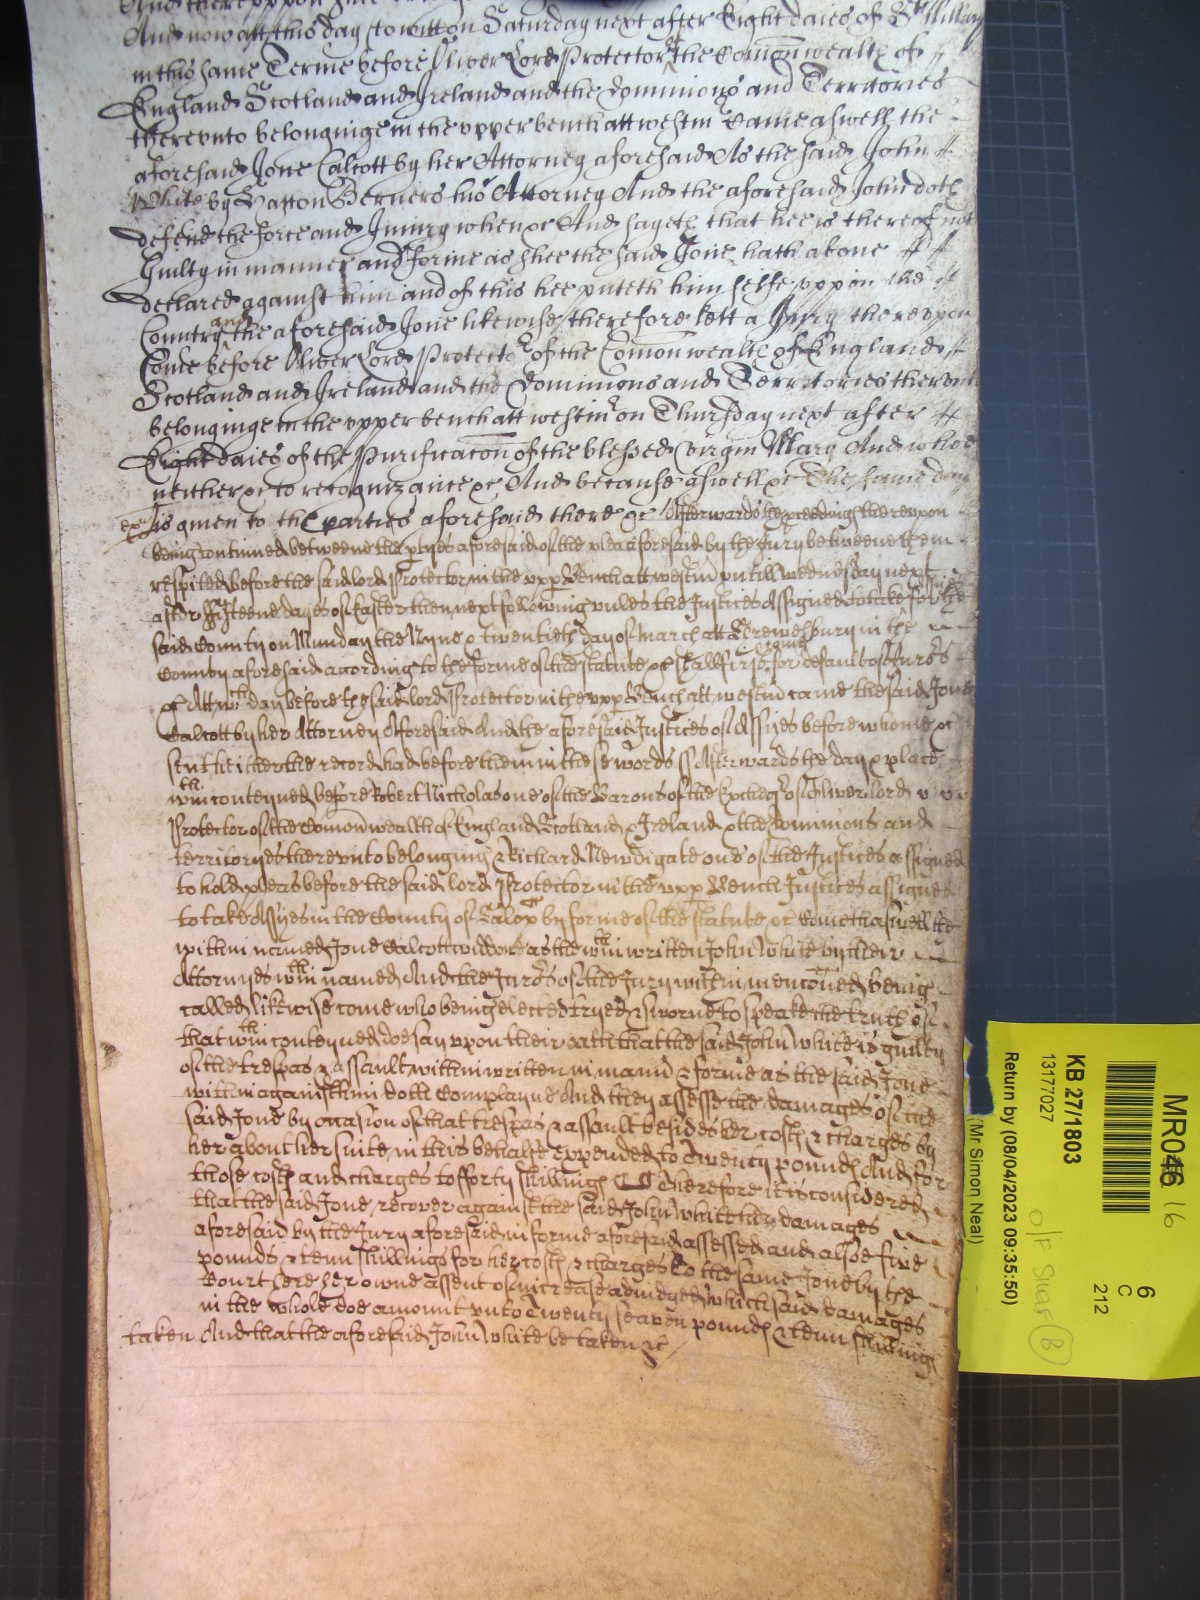 And now att this day to witt on Saturday next after Eight daies of St Hillary
in this same Terme before Oliver Lord Protector of the Comonwealth of
England Scotland and Ireland and the Dominions and Territories
therevnto belonginge in the vpper bench att westm Came aswell the
aforesaid Jone Calcott by her Attorney aforesaid As the said John
White by Hatton Berners his Attorney And the aforesaid John doth
defend the force and Iniury when &c And sayeth that hee is thereof not
Guilty in manner and forme as shee the said Jone hath aboue
declared against him and of this hee putteth him selfe vppon the
Countrey and the aforesaid Jone likewise therefore lett a Jury therevpon
Come before Oliver Lord Protector of the Comonwealth of England
Scotland and Ireland and the Dominions and Territories therevnto
belonginge in the vpper bench att westm on Thursday next after
Eight daies of the Purificacon of the blessed Virgin Mary And who
neither &c to recognizance &c And because aswell &c The same day
is giuen to the parties aforesaid there &c Afterwards the proceedings therevpon
being continued betweene the ptyes aforesaid of the plea aforesaid by the Jury betweene them
respited before the said lord Protector in the vpp Bench att westm vntill wednesday next
after Fifteene dayes of Easter then next following vnles the Justices Assigned to take Assizes for the
said County on Munday the Nyne & twentieth day of March att Shrewesbury in the
County aforesaid according to the forme of the statute &c shall first come for default of Jurors
&c Att wch day before the said lord Protector in the vpp Bench att westm came the said Jone
Calcott by her Attorney Aforesaid And the aforesaid Justices of Assizes before whome &c
sent hither the record had before them in these words ss Afterwards the day & place
within conteyned before Robert Nicholas one of the Barons of the Excheqr of Oliver lord
Protector of the Comonwealth of England Scotland & Ireland & the dominions and
territoryes therevnto belonging & Richard Newdigate one of the Justices assigned
to hold pleas before the said lord Protector in the vpp Bench Justices assigned
to take Assizes in the County of Salop by forme of the statute &c Came aswell the
within named Jone Calcott widdowe as the within written John White by their
Attornyes within named And the Jurors of the Jury within menconed being
called likewise come who being elected tryed & sworne to speake the truth of
that within conteyned doe say vpon their oath that the said John White is guilty
of the trespas & assault within written in mann & forme as the said Jone
within against him doth Complayne And they assesse the damages of the
said Jone by occasion of that trespas & assault besides her costs & charges by
her about her suite in this behalfe expended to Twenty pounds And for
those costs and charges to fforty shillings Therefore it is considered
that the said Jone recover against the said John White her damages
aforesaid by the Jury aforesaid in forme aforesaid assessed and alsoe five
pounds & tenn shillings for her costs & charges to the same Jone by the
Court here her owne assent of increase adiudged which said damages
in the whole doe amount vnto Twenty seaven pounds & tenn shillings
taken And that the aforesaid John White be taken &c
MR046 16
6
C
212
KB 27/1803
13177027
O/F Shelf B
Return by (08/04/2023 09:35:50)
(Mr Simon Neal)